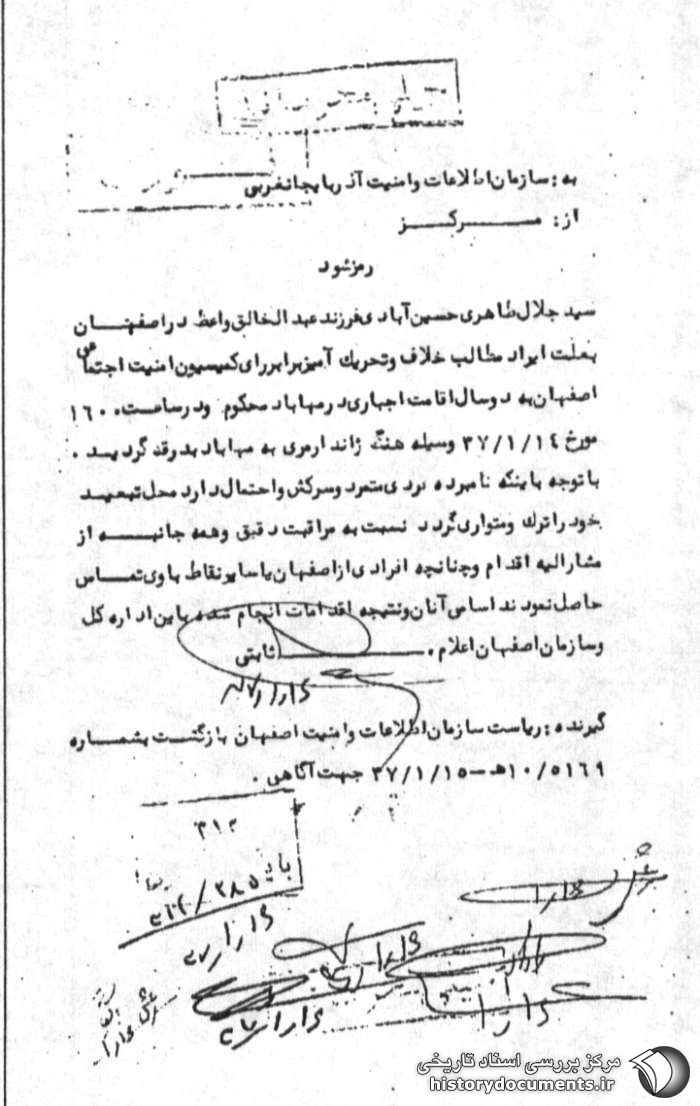 به: سازمان اطلاعات و امنیت آذربایجانغربی
از: مرکز
رمز شود
سید جلال طاهری حسین آبادی فرزند عبدالخالق واعظ در اصفهان
بعلت ایراد مطالب خلاف و تحریک آمیز برابر رای کمیسیون امنیت اجتماعی
اصفهان به دو سال اقامت اجباری در مهاباد محکوم و در ساعت ۱۶۰۰
مورخ ۳۷/۱/۱۴ وسیله هنگ ژاندارمری به مهاباد بدرقه گردید.
با توجه باینکه نامبرده فردی متمرد و سرکش و احتمال دارد محل تبعید
خود را ترک و متواری گردد نسبت به مراقبت دقیق و همه جانبه از
مشارالیه اقدام و چنانچه افرادی از اصفهان یا سایر نقاط با وی تماس
حاصل نمودند اسامی آنان و نتیجه اقدامات انجام شده باین اداره کل
و سازمان اصفهان اعلام. ثابتی
گیرنده: ریاست سازمان اطلاعات و امنیت اصفهان بازگشت بشماره
۱۰/۵۱۶۹ه‍ - ۳۷/۱/۱۵ جهت آگاهی.
۳۱۲
مرکز بررسی اسناد تاریخی
historydocuments.ir